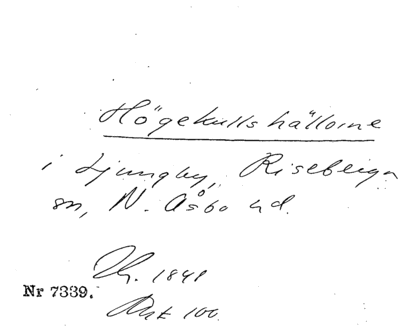 Högekullshällorne
i Ljungby, Riseberga
sn, N. Åsbo hd.
Th. 1841
Nr 7339.
Akt 100.